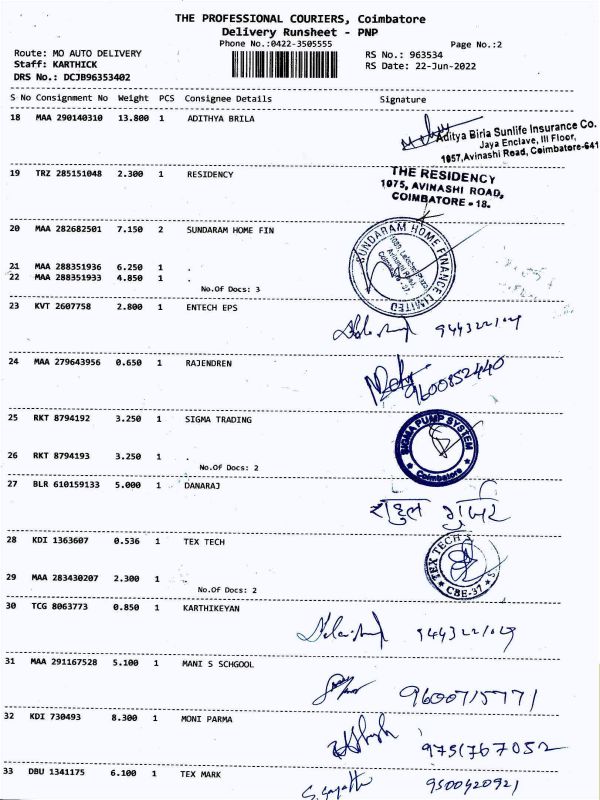 THE PROFESSIONAL COURIERS, Coimbatore
Delivery Runsheet - PNP
Phone No.:0422-3505555
Page No.:2
Route: MO AUTO DELIVERY
RS No.: 963534
Staff: KARTHICK
RS Date: 22-Jun-2022
DRS No.: DCJB96353402
S No Consignment No Weight PCS Consignee Details Signature
18 MAA 290140310 13.800 1 ADITHYA BRILA
Aditya Birla Sunlife Insurance Co.
Jaya Enclave, III Floor,
1057,Avinashi Road, Coimbatore-641
19 TRZ 285151048 2.300 1 RESIDENCY
THE RESIDENCY
1075, AVINASHI ROAD,
COIMBATORE - 18.
20 MAA 282682501 7.150 2 SUNDARAM HOME FIN
SUNDARAM HOME FINANCE LIMITED
21 MAA 288351936 6.250 1 .
22 MAA 288351933 4.850 1 .
No.Of Docs: 3
23 KVT 2607758 2.800 1 ENTECH EPS
24 MAA 279643956 0.650 1 RAJENDREN
9600852440
25 RKT 8794192 3.250 1 SIGMA TRADING
SIGMA PUMP SYSTEM
Coimbatore
26 RKT 8794193 3.250 1 .
No.Of Docs: 2
27 BLR 610159133 5.000 1 DANARAJ
राहुल
28 KDI 1363607 0.536 1 TEX TECH
TEX TECH
CBE-37
29 MAA 283430207 2.300 1 .
No.Of Docs: 2
30 TCG 8063773 0.850 1 KARTHIKEYAN
9443221029
31 MAA 291167528 5.100 1 MANI S SCHGOOL
9600715771
32 KDI 730493 8.300 1 MONI PARMA
9751767052
33 DBU 1341175 6.100 1 TEX MARK
9500420921